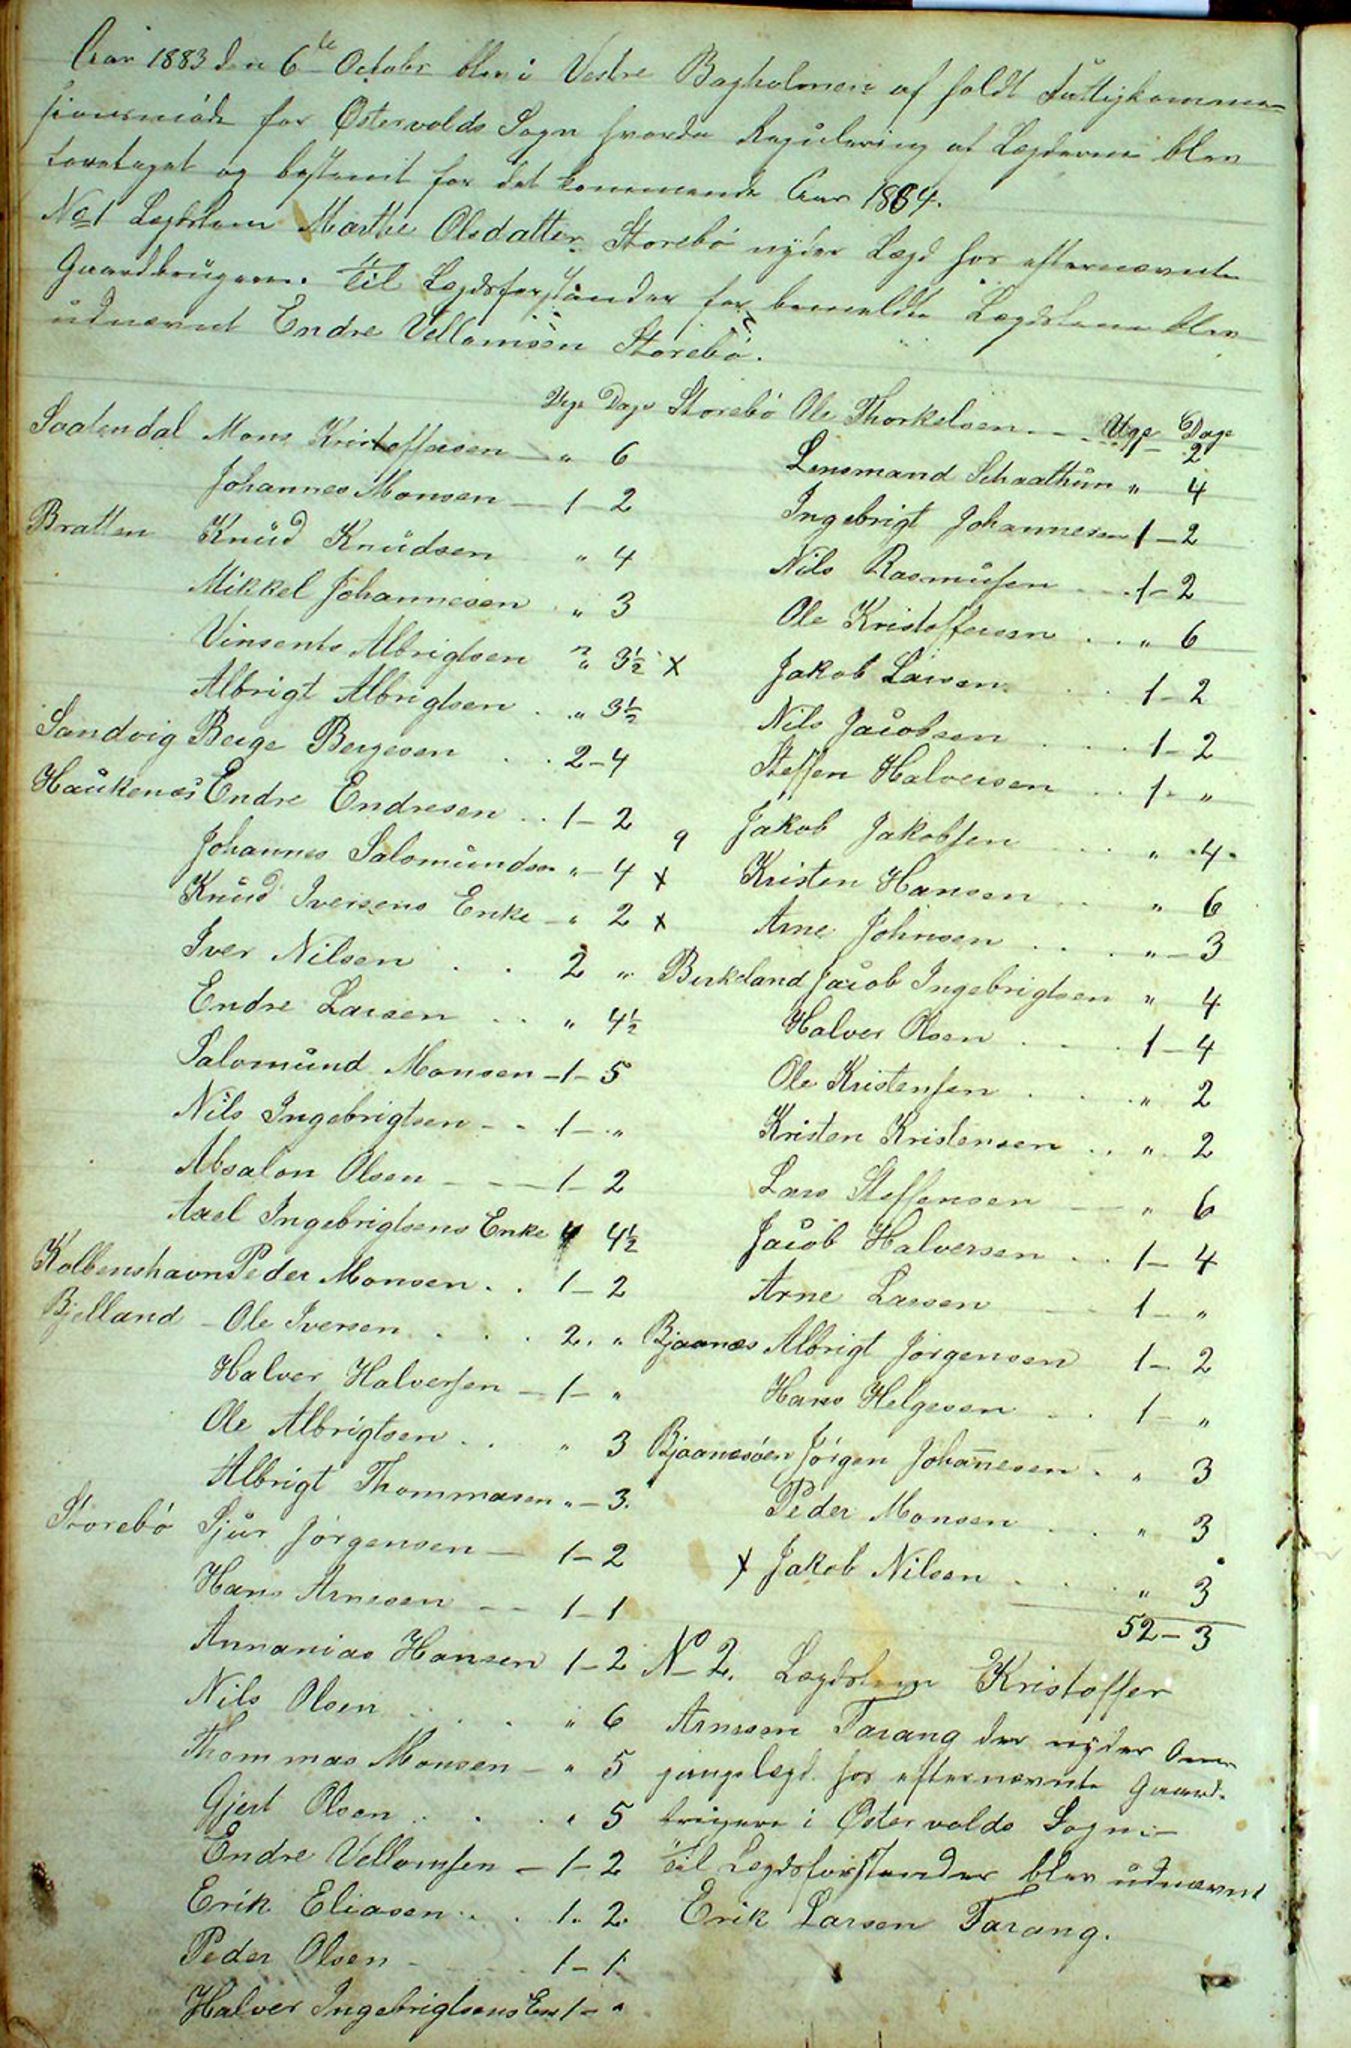 Aar 1883 den 6te Octobr blev i Vestre Bagholmen af holdt Fattigkommis-
sionsmöde for Østervolds Sogn hvorda Regulering af Lægderne blev
foretaget og bestemt for det kommende Aar 1884.
No 1 Lægdslem Marthe Olsdatter Storebö nyder Lægd hos efternævnte
Gaardbrugere. Til Lægdsforstander for bemeldte Lægdslem blev
udnævnt Endre Vellomsen Storebö.
Uge Dage
Saatendal Mons Kristoffersen " 6
Johannes Monsen 1 - 2
Bratten Knud Knudsen " 4
Mikkel Johannesen " 3
Vinsents Albrigtsen " 3½
Albrigt Albrigtsen " 3½
Sandvig Berge Bergesen 2 - 4
Haukenæs Endre Endresen 1 - 2
Johannes Salomundsen " - 4
Knud Iversens Enke " 2
Iver Nilsen 2 "
Endre Larsen " 4½
Salomund Monsen 1 - 5
Nils Ingebrigtsen 1 - "
Absalon Olsen 1 - 2
Axel Ingebrigtsens Enke " 4½
Kolbenshavn Peder Monsen 1 - 2
Bjelland Ole Iversen 2 "
Halver Halversen 1 - "
Ole Albrigtsen " 3
Albrigt Thommasen " - 3
Storebö Sjur Jörgensen 1 - 2
Hans Arnesen 1 - 1
Annanias Hansen 1 - 2
Nils Olsen " 6
Thommas Monsen " 5
Gjert Olsen " 5
Endre Vellomsen 1 - 2
Erik Eliasen 1 - 2
Peder Olsen 1 - 1
Halver Ingebrigtsens En 1 - "
Uge Dage
Storebö Ole Thorkelsen - 2
Lensmand Schaathun " 4
Ingebrigt Johannesen 1 - 2
Nils Rasmusen 1 - 2
Ole Kristoffersen " 6
x Jakob Larsen 1 - 2
Nils Jacobsen 1 - 2
Steffen Halversen 1 - "
9 Jakob Jakobsen " 4
x Kristen Hansen " 6
x Arne Johnsen " - 3
Birkeland Jacob Ingebrigtsen " 4
Halver Olsen 1 - 4
Ole Kristensen " 2
Kristen Kristensen " 2
Lars Steffensen " 6
Jacob Halversen 1 - 4
Arne Larsen 1 - "
Bjaanæs Albrigt Jörgensen 1 - 2
Hans Helgesen 1 - "
Bjaanesöen Jörgen Johannesen " 3
Peder Monsen " 3
x Jakob Nilsen " 3
52 - 3
No 2. Lægdslem Kristoffer
Arnesen Tarang der nyder Om-
gangslægd hos efternævnte Gaard-
brugere i Østervolds Sogn.-
Til Lægdsforstander blev udnævnt
Erik Larsen Tarang.